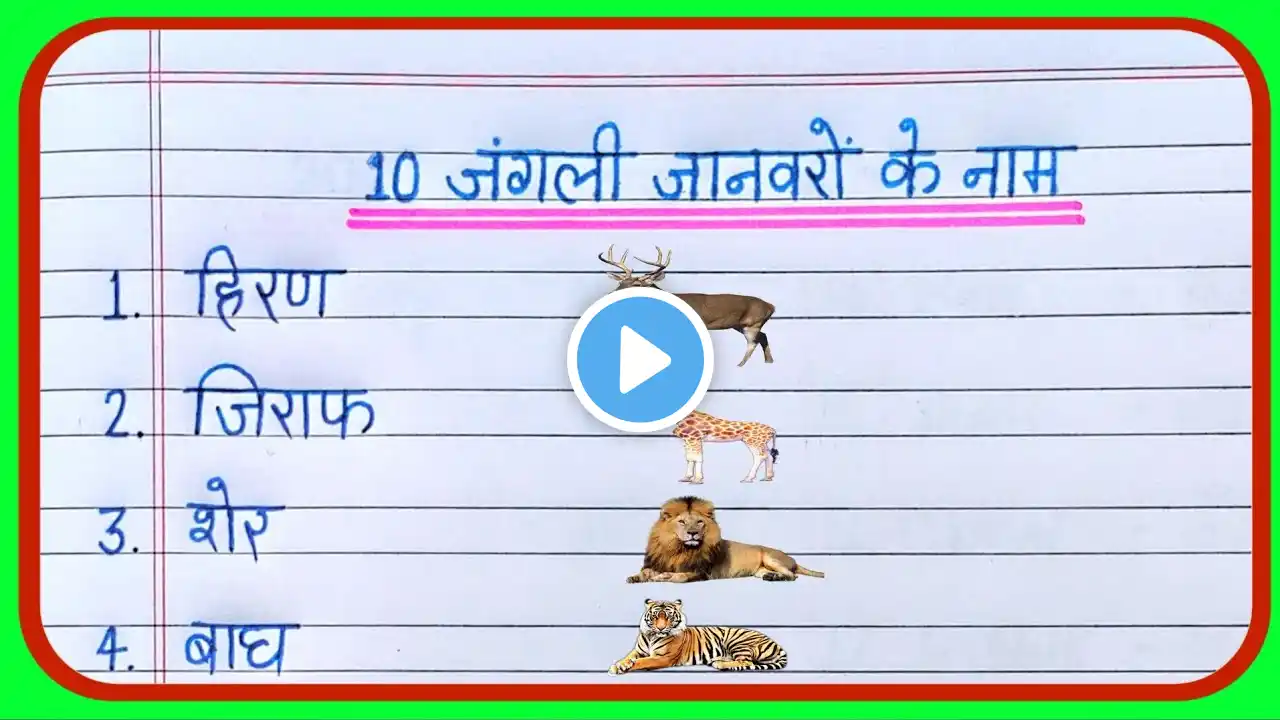 10 जंगली जानवरों के नाम
1. हिरण
2. जिराफ
3. शेर
4. बाघ